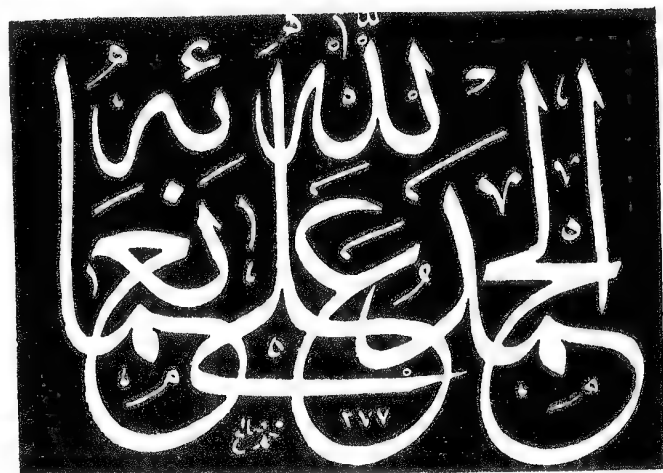 الحمد لله على نعمائه
٢٧٧